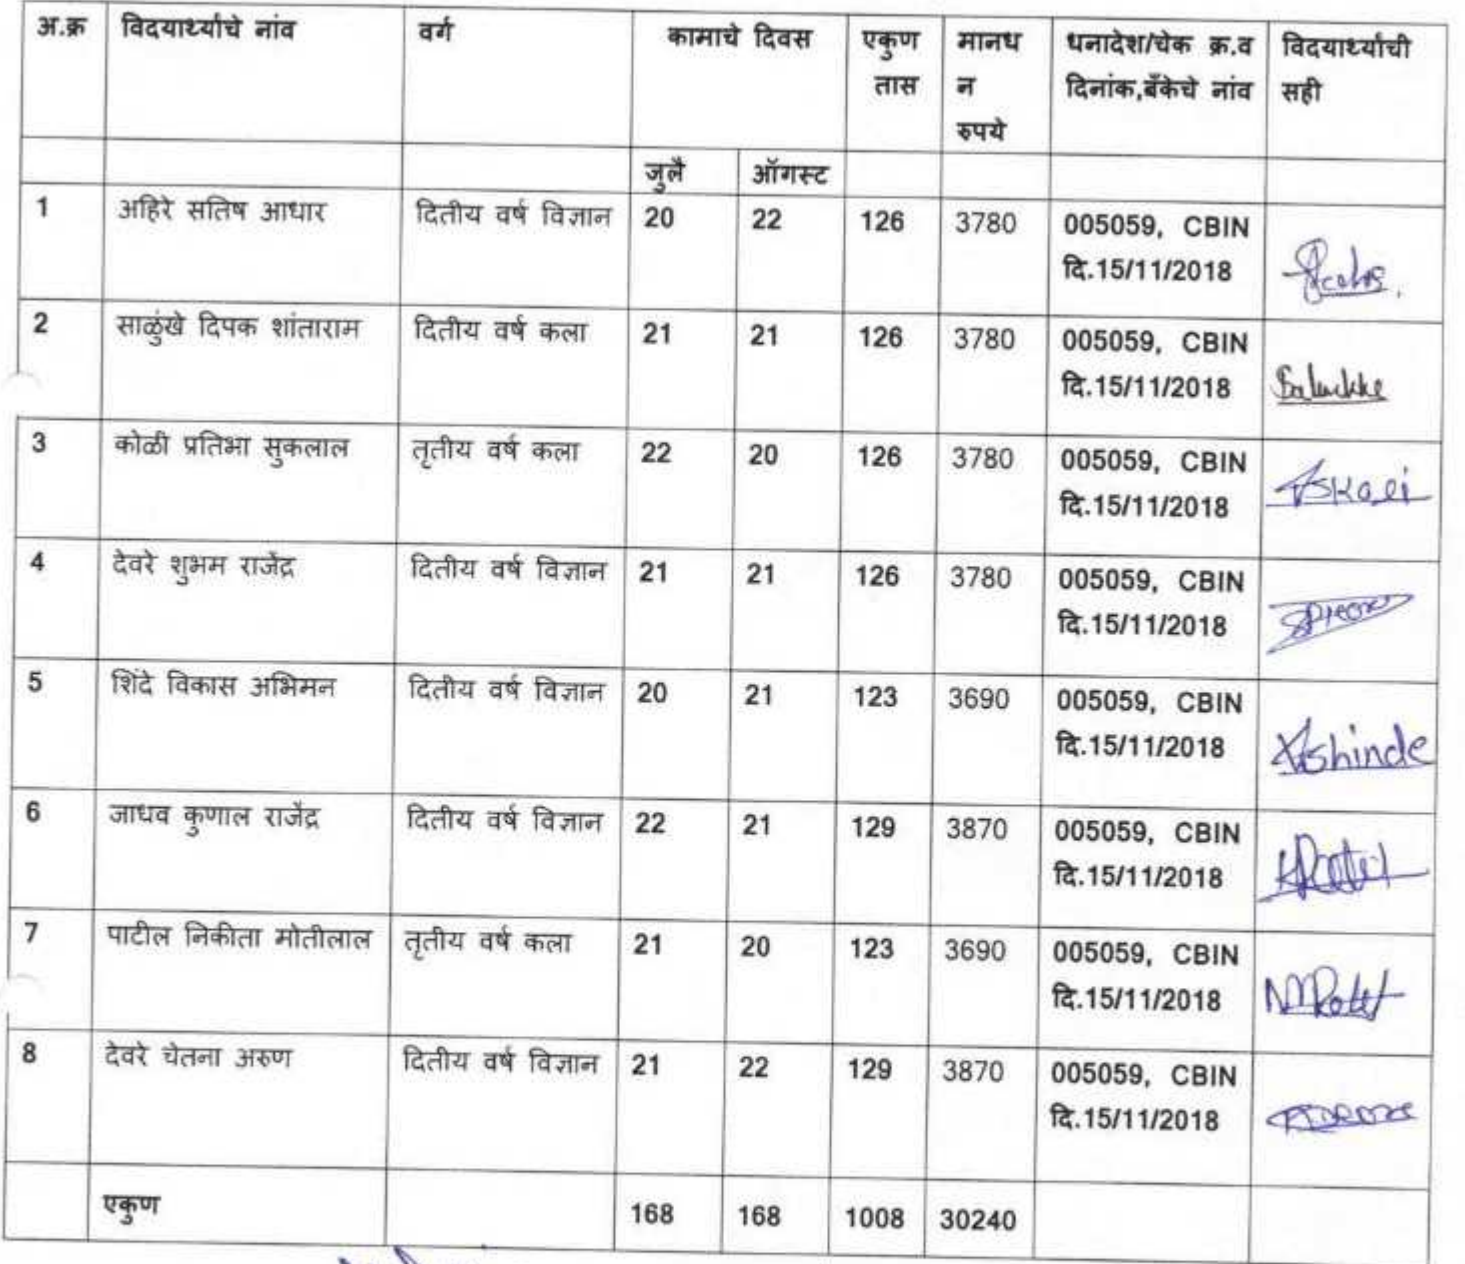 अ.क्र विदयार्थ्याचे नांव वर्ग कामाचे दिवस एकुण तास मानधन रुपये धनादेश/चेक क्र.व दिनांक,बँकेचे नांव विदयार्थ्याची सही
जुलै ऑगस्ट
1 अहिरे सतिष आधार दितीय वर्ष विज्ञान 20 22 126 3780 005059, CBIN
दि.15/11/2018
2 साळुंखे दिपक शांताराम दितीय वर्ष कला 21 21 126 3780 005059, CBIN
दि.15/11/2018 Salunkhe
3 कोळी प्रतिभा सुकलाल तृतीय वर्ष कला 22 20 126 3780 005059, CBIN
दि.15/11/2018
4 देवरे शुभम राजेंद्र दितीय वर्ष विज्ञान 21 21 126 3780 005059, CBIN
दि.15/11/2018
5 शिंदे विकास अभिमन दितीय वर्ष विज्ञान 20 21 123 3690 005059, CBIN
दि.15/11/2018 VAshinde
6 जाधव कुणाल राजेंद्र दितीय वर्ष विज्ञान 22 21 129 3870 005059, CBIN
दि.15/11/2018
7 पाटील निकीता मोतीलाल तृतीय वर्ष कला 21 20 123 3690 005059, CBIN
दि.15/11/2018 NMPatil
8 देवरे चेतना अरुण दितीय वर्ष विज्ञान 21 22 129 3870 005059, CBIN
दि.15/11/2018
एकुण 168 168 1008 30240